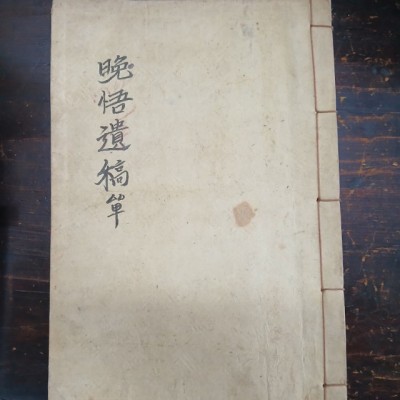 晚悟遺稿單